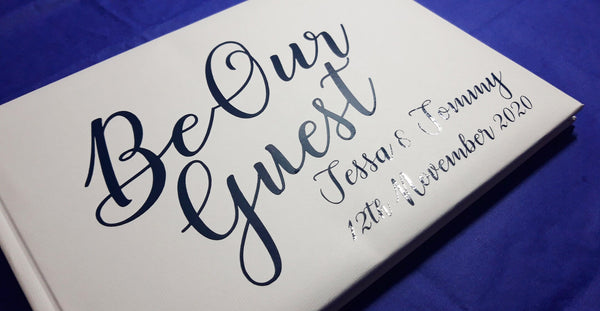 Be Our
Guest
Tessa & Tommy
12th November 2020